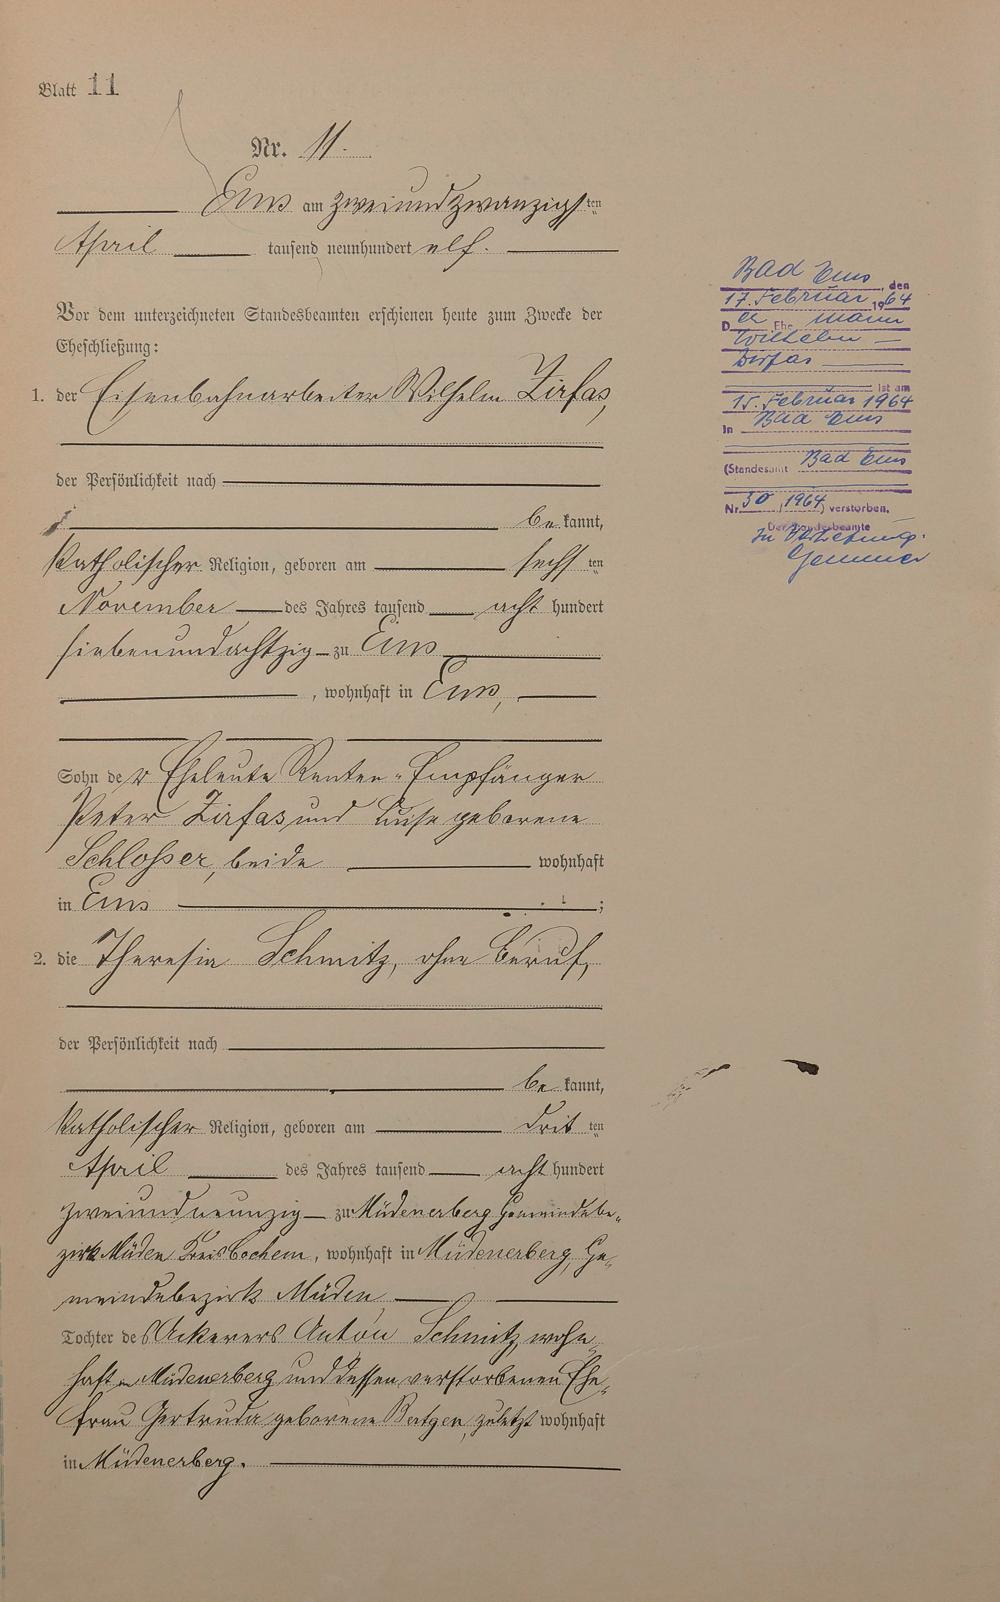 Blatt 11
Nr. 11.
Ems am zweiundzwanzigsten
April tausend neunhundert elf.
Vor dem unterzeichneten Standesbeamten erschienen heute zum Zwecke der
Eheschließung:
1. der Eisenbahnarbeiter Wilhelm Zirfas,
der Persönlichkeit nach
be kannt,
katholischer Religion, geboren am sechsten
November des Jahres tausend acht hundert
siebenundachtzig zu Ems
, wohnhaft in Ems,
Sohn der Eheleute Renten-Empfänger
Peter Zirfas und Luise geborene
Schlosser, beide wohnhaft
in Ems ;
2. die Theresia Schmitz, ohne Beruf,
der Persönlichkeit nach
be kannt,
katholischer Religion, geboren am dritten
April des Jahres tausend acht hundert
zweiundneunzig zu Müdenerberg Gemeindebe-
zirk Müden Kreis Cochem, wohnhaft in Müdenerberg, Ge-
meindebezirk Müden
Tochter des Ackerers Anton Schmitz, wohn-
haft in Müdenerberg und dessen verstorbenen Ehe-
frau Gertruda geborene zuletzt wohnhaft
in Müdenerberg.
Bad Ems, den
17. Februar 1964
Der Ehemann
Wilhelm
Zirfas
ist am
15. Februar 1964
in Bad Ems
(Standesamt Bad Ems
Nr. 30/1964) verstorben.
Der Standesbeamte
In Vertretung: